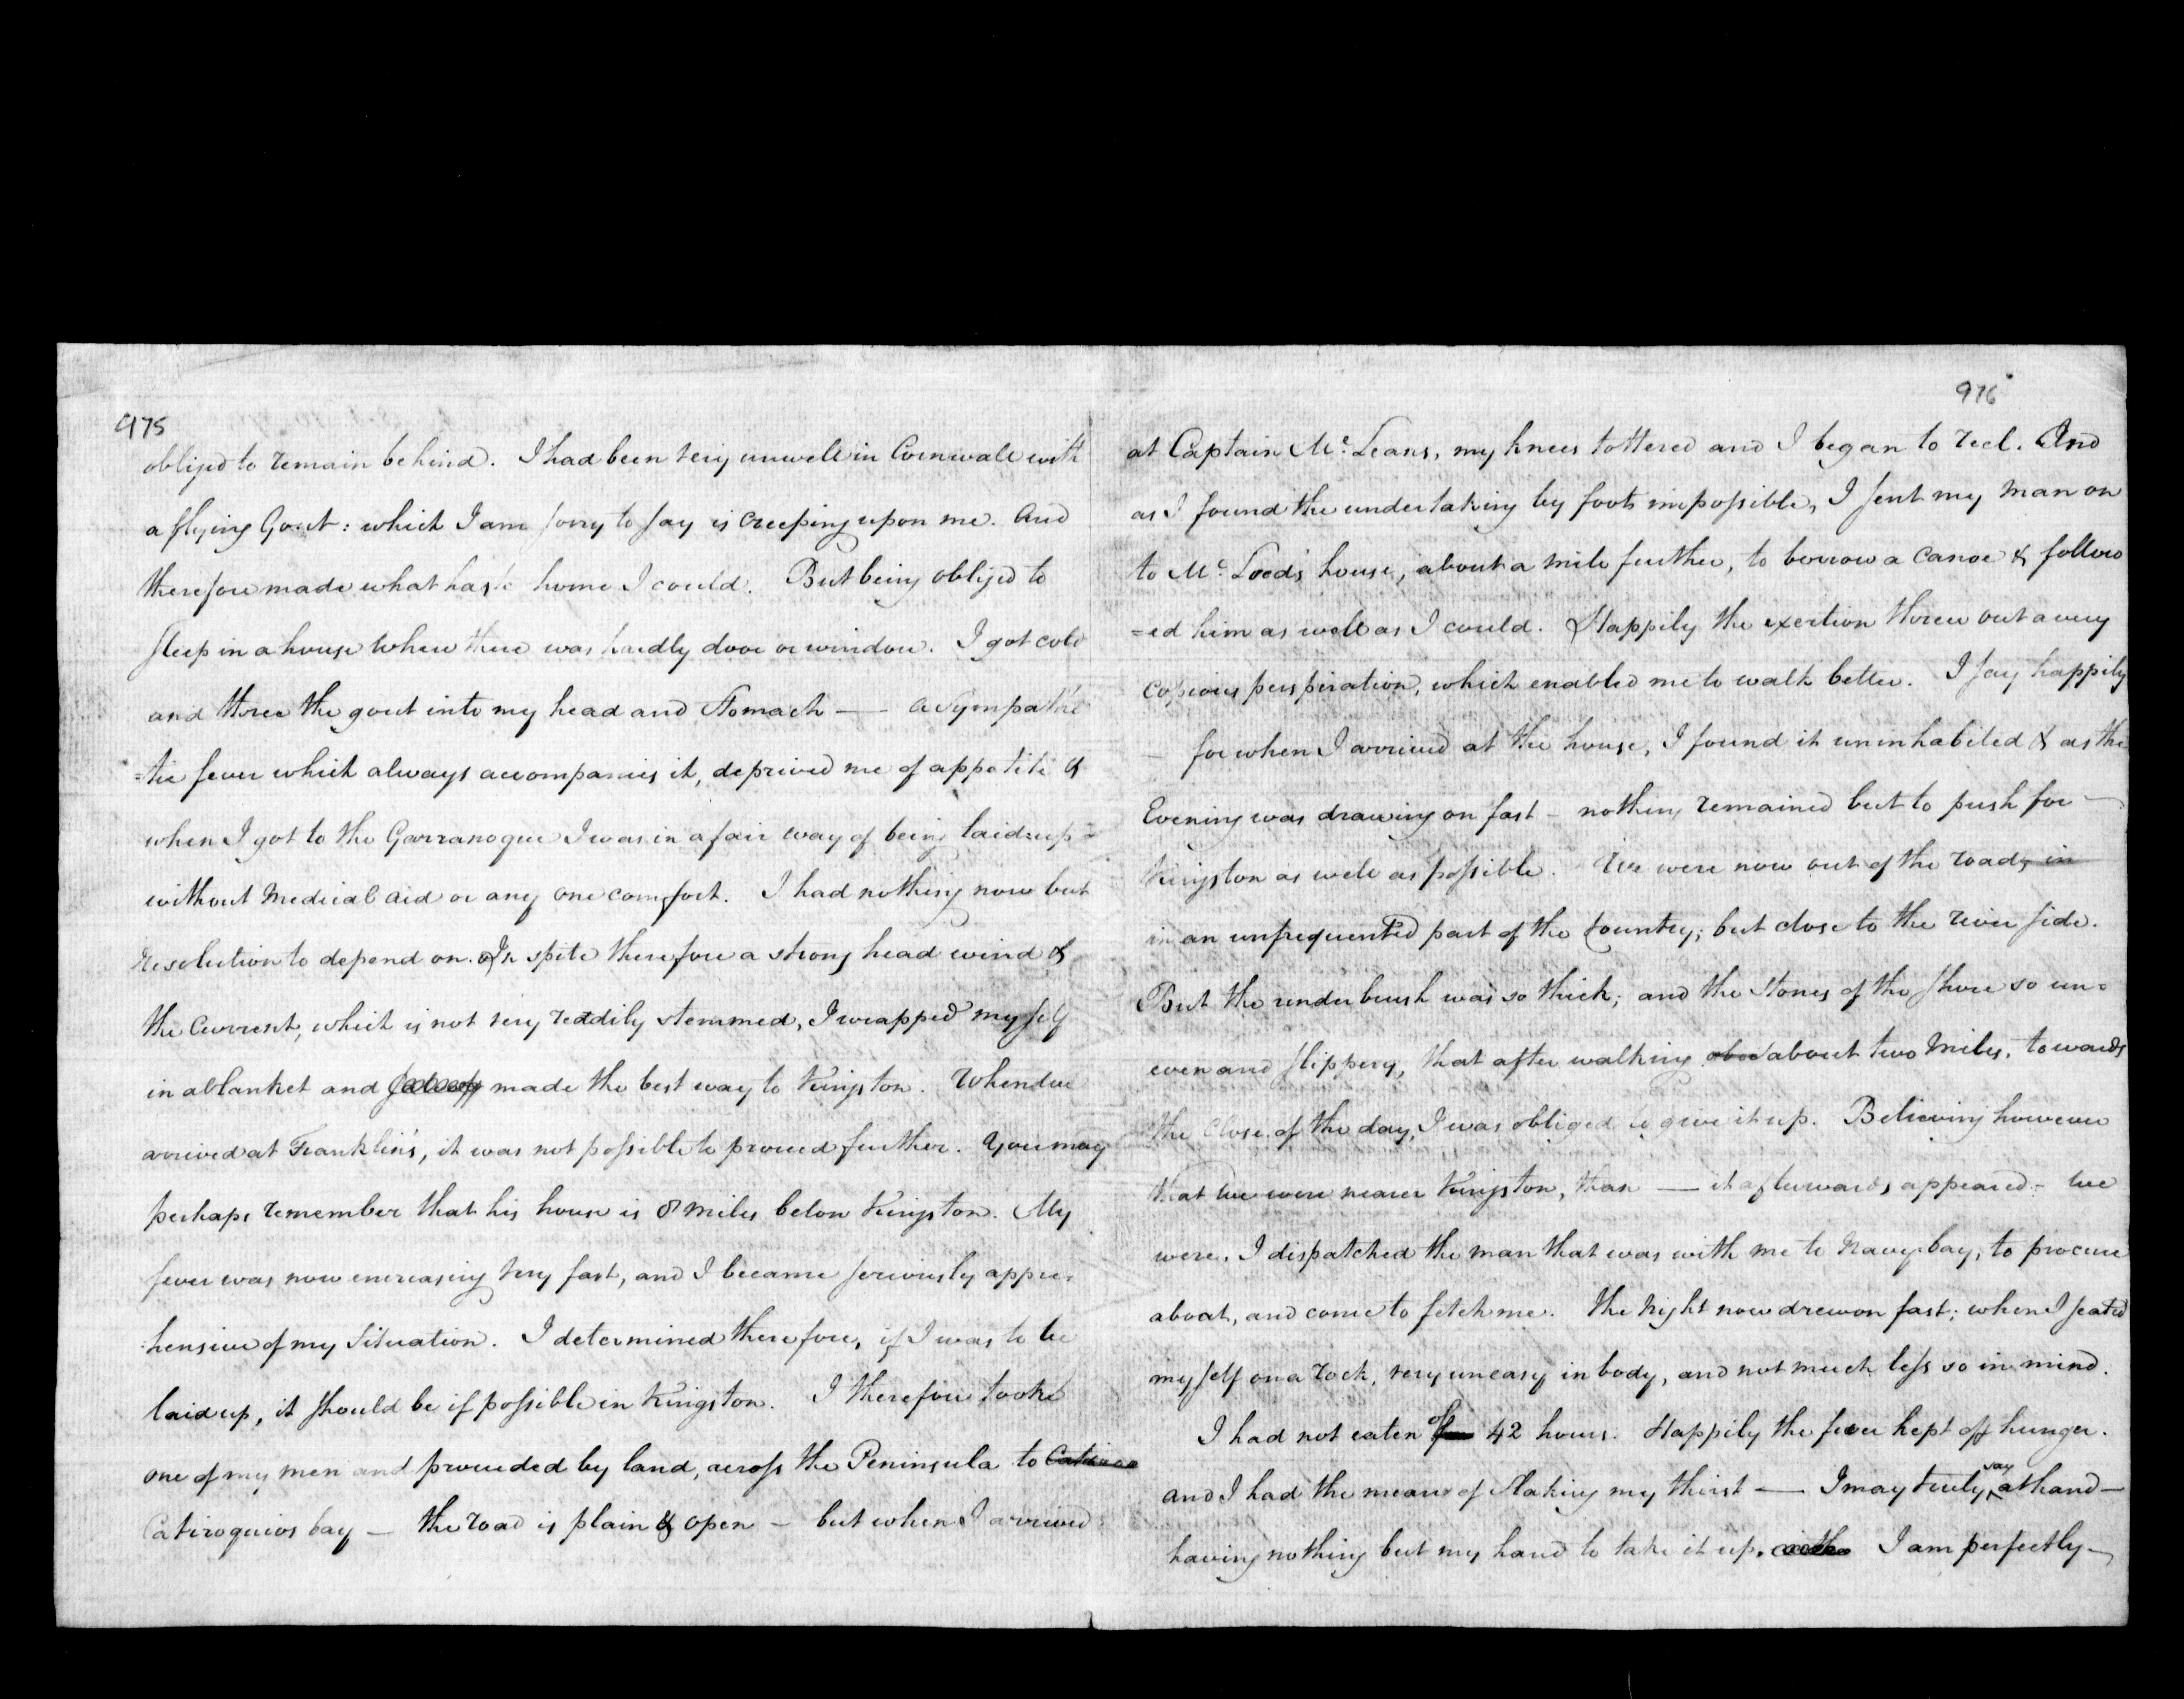 975
obliged to remain behind. I had been very unwell in Cornwall with
a flying Gout: which I am sorry to say is creeping upon me. And
therefore made what haste home I could. But being obliged to
sleep in a house where there was hardly door or window. I got cold
and threw the gout into my head and Stomach — a Sympathe
=tic fever which always accompanies it, deprived me of appetite &
when I got to the Garranoque I was in a fair way of being laid up
without Medical aid or any one comfort. I had nothing now but
resolution to depend on. In spite therefore a strong head wind &
the Current, which is not very readily stemmed, I wrapped myself
in a blanket and made the best way to Kingston. When we
arrived at Franklin's, it was not possible to proceed further. You may
perhaps remember that his house is 8 miles below Kingston. My
fever was now encreasing very fast, and I became seriously appre=
=hensive of my Situation. I determined therefore, if I was to be
laid up, it should be if possible in Kingston. I therefore tooke
one of my men and proceeded by land, across the Peninsula to
Catiroquios bay — the road is plain & open — but when I arrived
976
at Captain Mc. Leans, my knees tottered and I began to reel. And
as I found the undertaking by foot impossible, I sent my man on
to Mc. Leods house, about a mile further, to borrow a Canoe & follow
=ed him as well as I could. Happily the exertion threw out a very
copious perspiration, which enabled me to walk better. I say happily
— for when I arrived at the house, I found it uninhabited & as the
Evening was drawing on fast — nothing remained but to push for —
Kingston as well as possible. We were now out of the road, in
in an unfrequented part of the Country; but close to the river side.
But the underbrush was so thick; and the Stones of the shore so un=
even and slippery, that after walking about two Miles, towards
the Close of the day, I was obliged to give it up. Believing however
that we were nearer Kingston, than — it afterwards appeared — we
were, I dispatched the man that was with me to Navy bay, to procure
a boat, and come to fetch me. The Night now drew on fast; when I seated
myself on a rock, very uneasy in body, and not much less so in mind.
I had not eaten of 42 hours. Happily the fever kept off hunger.
and I had the means of slaking my thirst — I may truly say at hand —
having nothing but my hand to take it up. I am perfectly —